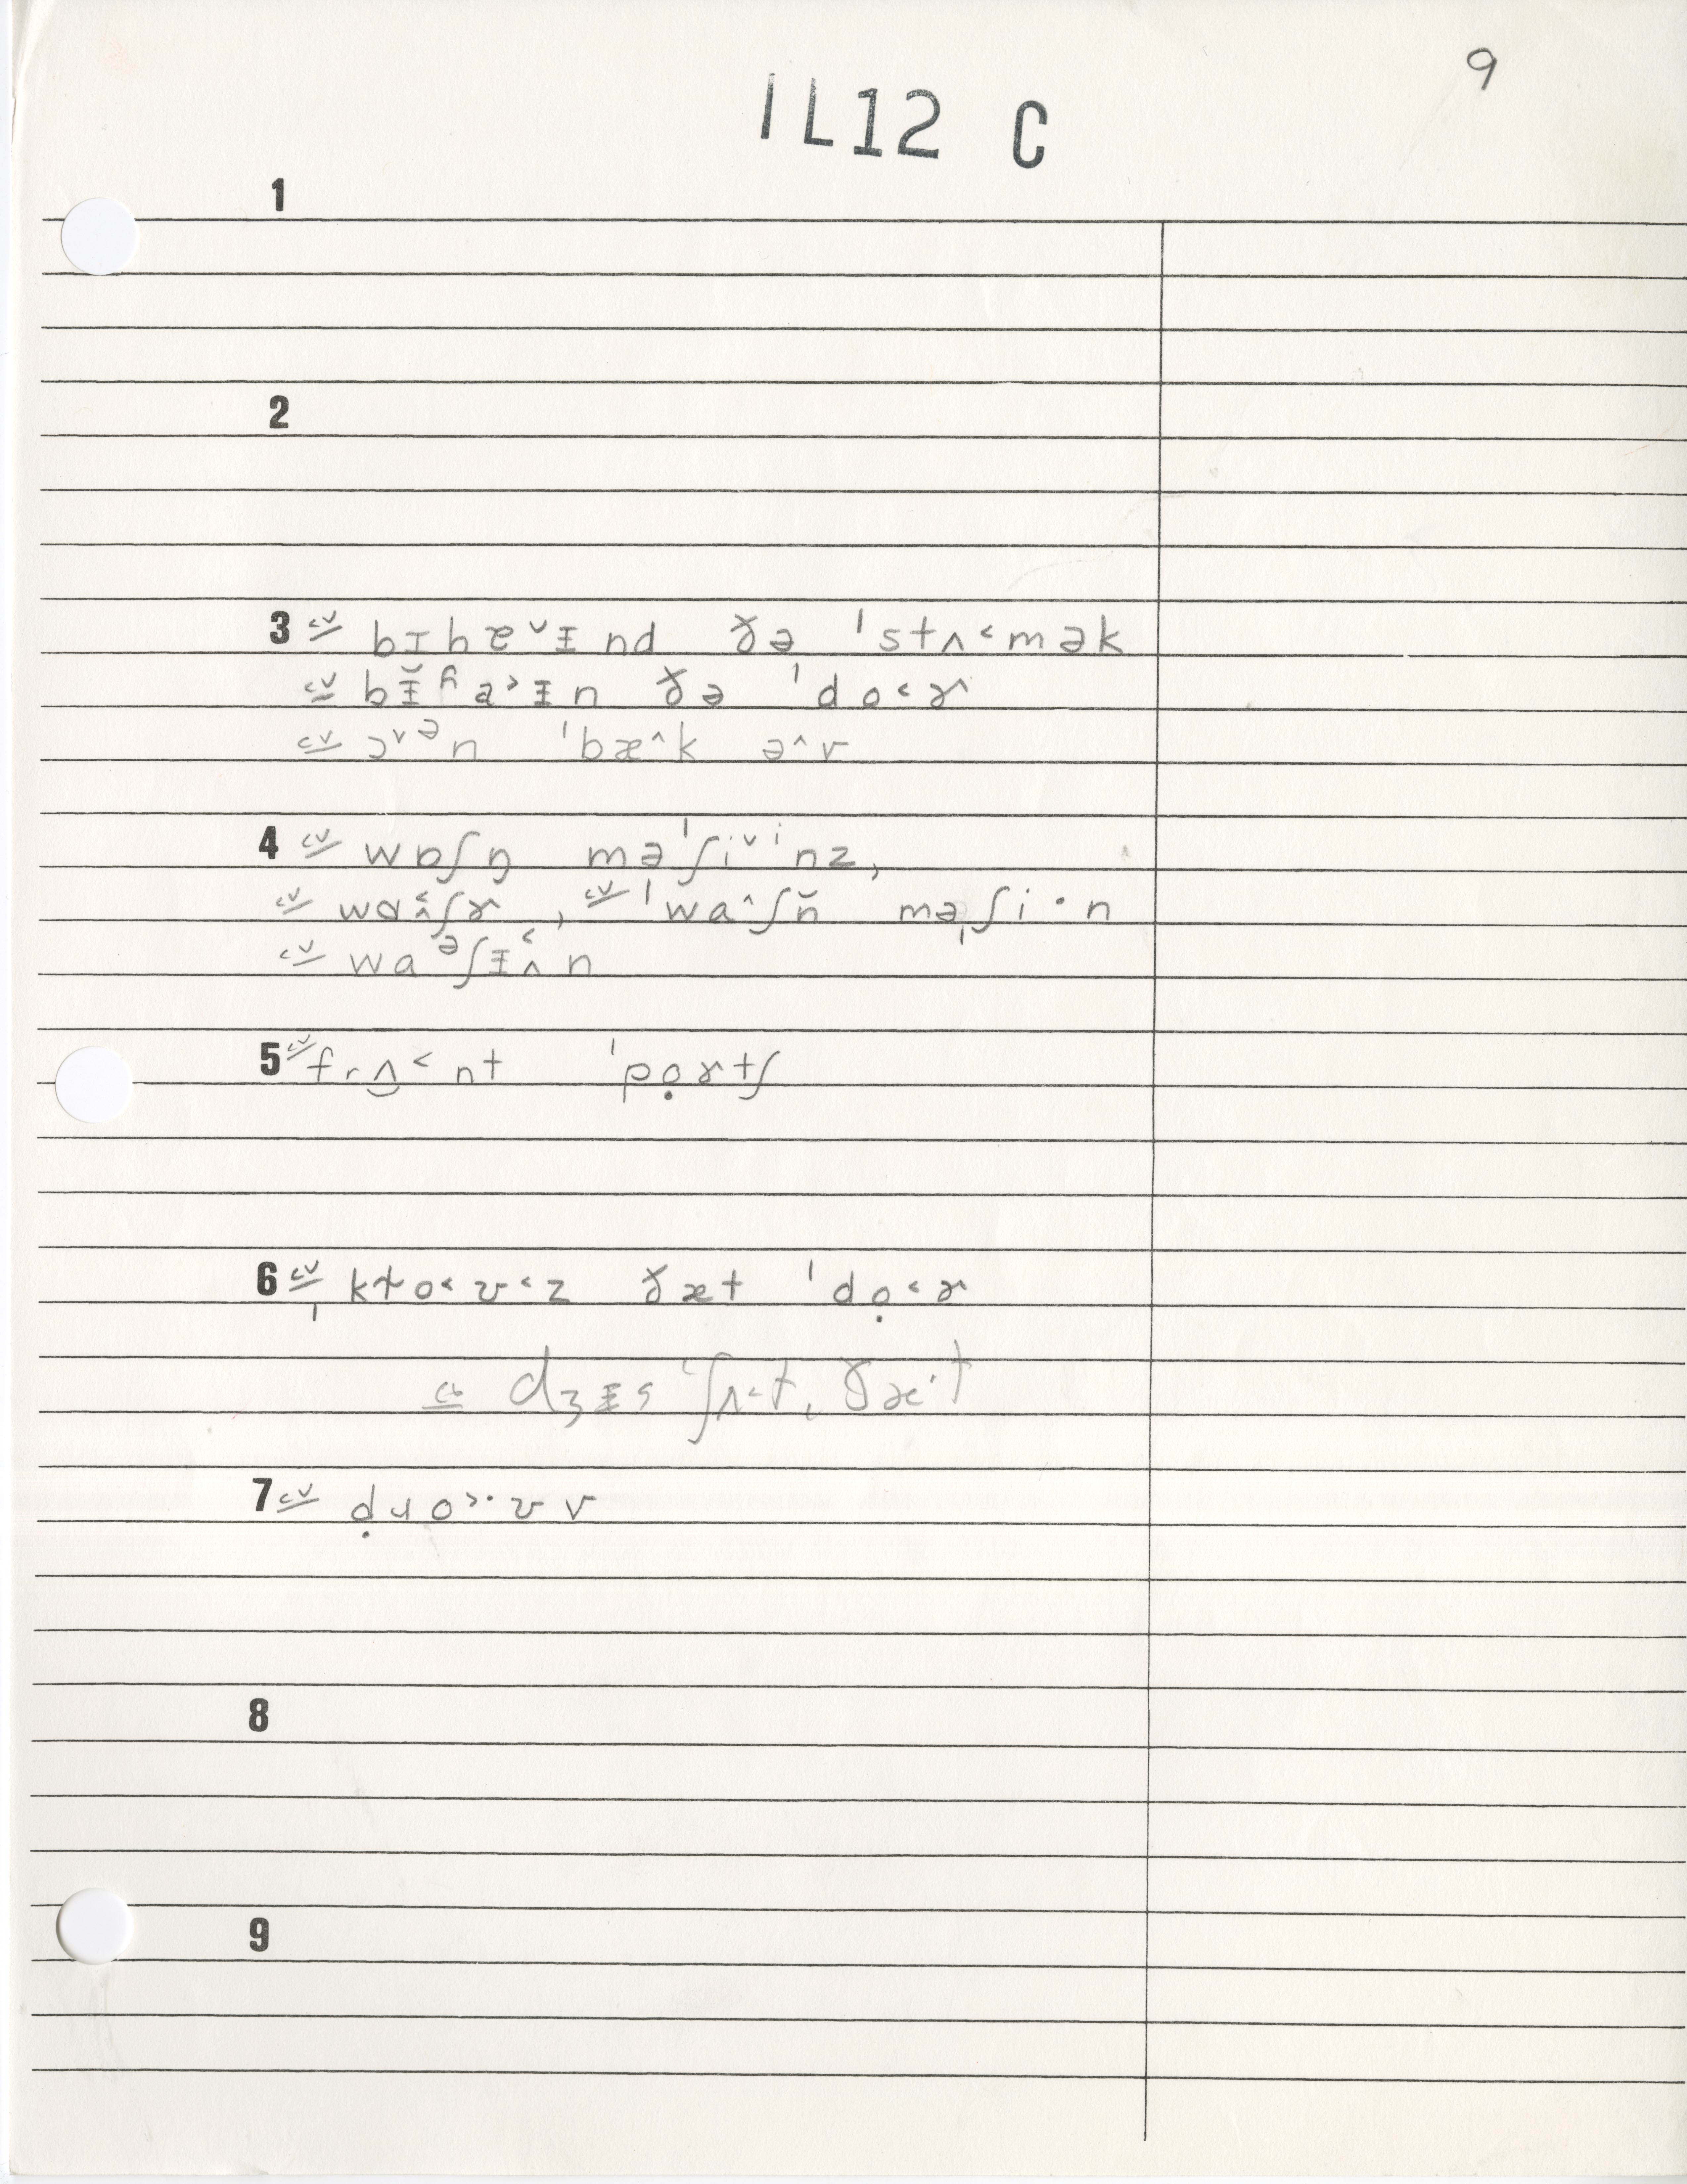 9
IL12 C
1
2
3 cv bɪhɐ˅ᵻnd ðə ˈstʌ˂mək
cv bᵻ̆ɦa˃ᵻn ðə ˈdo˂ɚ
cv ɔ˅ᵊn ˈbæ˄k ə˄v
4 cv wɒʃŋ məˈʃi˅ⁱnz,
cv wɑ˄˂ʃɚ, cv ˈwa˄ʃn̆ məˌʃi·n
cv waᵊʃᵻ˄˂n
5 cv frʌ̮˂nt ˈpọɚtʃ
6 cv kɫo˂ʊ˂z ðæt ˈdọ˂ɚ
dʒᵻs ʃʌ˂t, ðæ·t
7 cv ḍɹo˃·ʊv
8
9